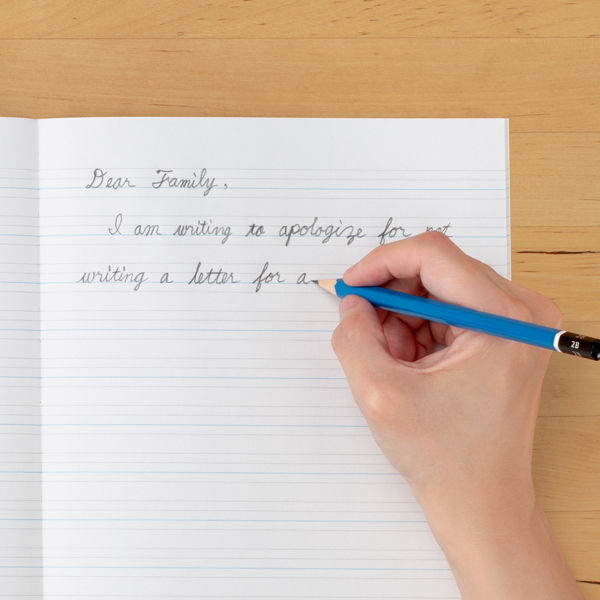 Dear Family,
I am writing to apologize for not
writing a letter for a
2B